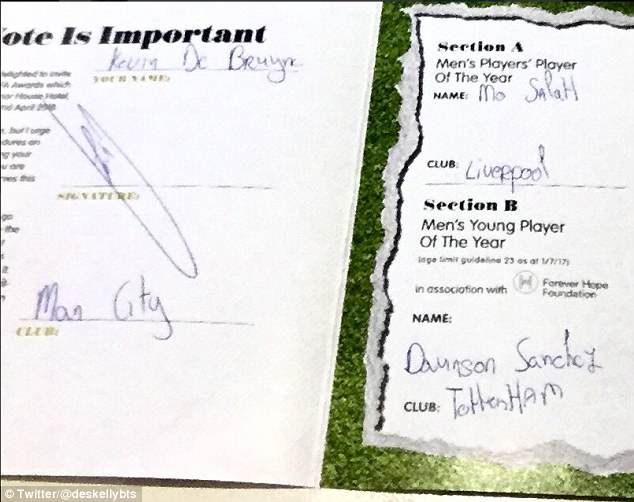 ote Is Important
Kevin De Bruyne
YOUR NAME:
delighted to invite
FA Awards which
nor House Hotel,
nd April 2018.
, but I urge
dures on
ng your
u are
ves this
SIGNATURE:
go
the
it
Man City
CLUB:
Section A
Men's Players' Player
Of The Year
NAME: Mo Salah
CLUB: Liverpool
Section B
Men's Young Player
Of The Year
(age limit guideline 23 as at 1/7/17)
in association with Forever Hope
Foundation
NAME:
Davinson Sanchez
CLUB: TottenHAM
© Twitter/@deskellybts